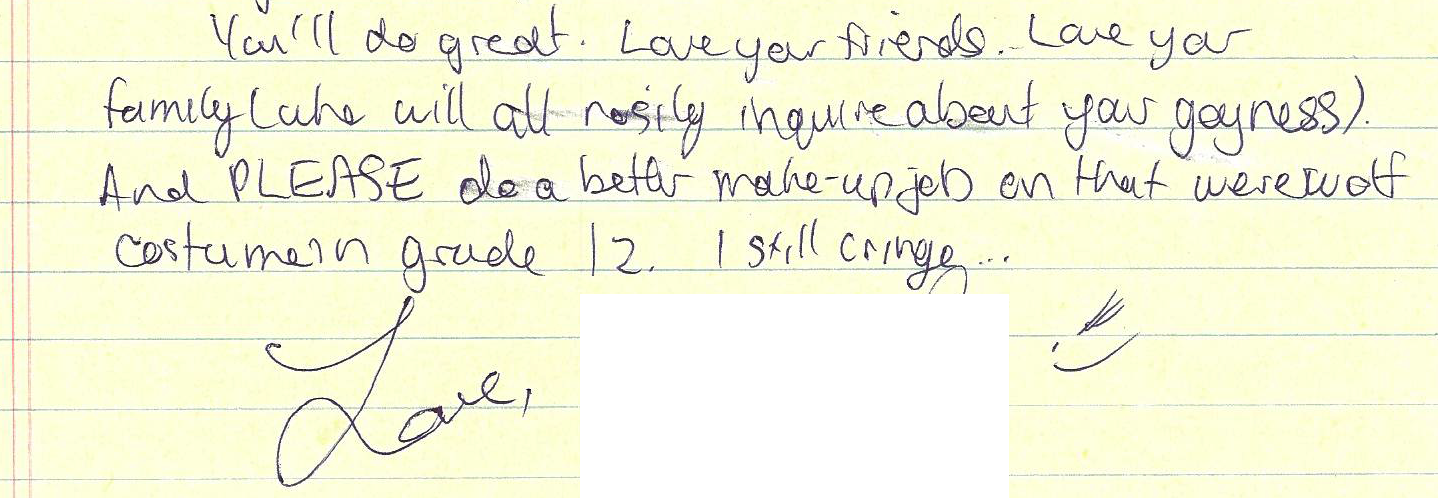 You'll do great. Love your friends. Love your
family (who will all nosily inquire about your gayness).
And PLEASE do a better make-up job on that werewolf
costume in grade 12. I still cringe...
Love,